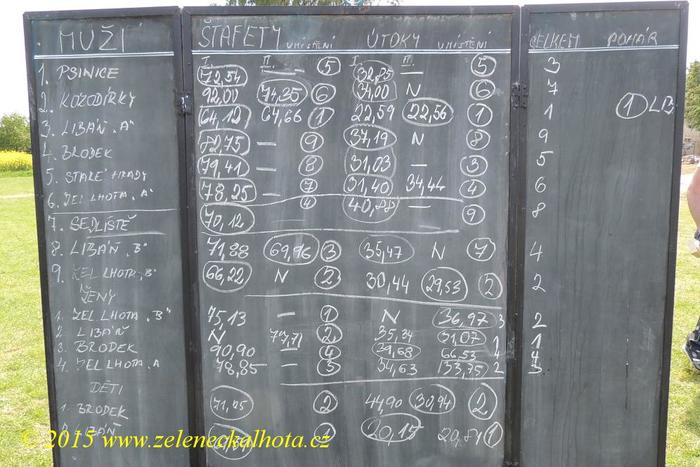 MUŽI ŠTAFETY UMÍSTĚNÍ ÚTOKY UMÍSTĚNÍ CELKEM POHÁR
I. II. I. II.
1. PSINICE 72,54 — 5 32,85 — 5 3
2. KOZODÍRKY 92,00 74,35 6 34,00 N 6 7
3. LIBÁŇ "A" 64,12 64,66 1 22,59 22,56 1 1 1 LB
4. BRODEK 82,75 — 9 37,19 N 8 9
5. STARÉ HRADY 79,41 — 8 31,03 — 3 5
6. ZEL LHOTA "A" 78,25 — 7 31,40 34,44 4 6
7. SEDLIŠTĚ 70,12 4 40,88 — 9 8
8. LIBÁŇ "B" 71,88 69,96 3 35,47 N 7 4
9. ZEL LHOTA "B" 66,22 N 2 30,44 29,53 2 2
ŽENY
1. ZEL LHOTA "B" 75,13 — 1 N 36,97 3 2
2. LIBÁŇ N 2 35,34 31,07 1 1
3. BRODEK 90,90 — 4 39,68 66,53 4 4
4. ZEL LHOTA "A 78,85 — 3 54,63 133,75 2 3
DĚTI
1. BRODEK 2 44,90 30,94 2
LIBÁŇ 1 20,15 1
© 2015 www.zeleneckalhota.cz